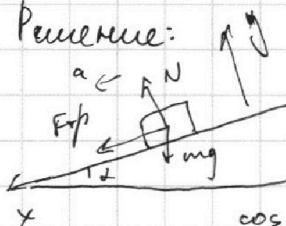 Решение:
y
a
N
Fтр
α
mg
x
cos